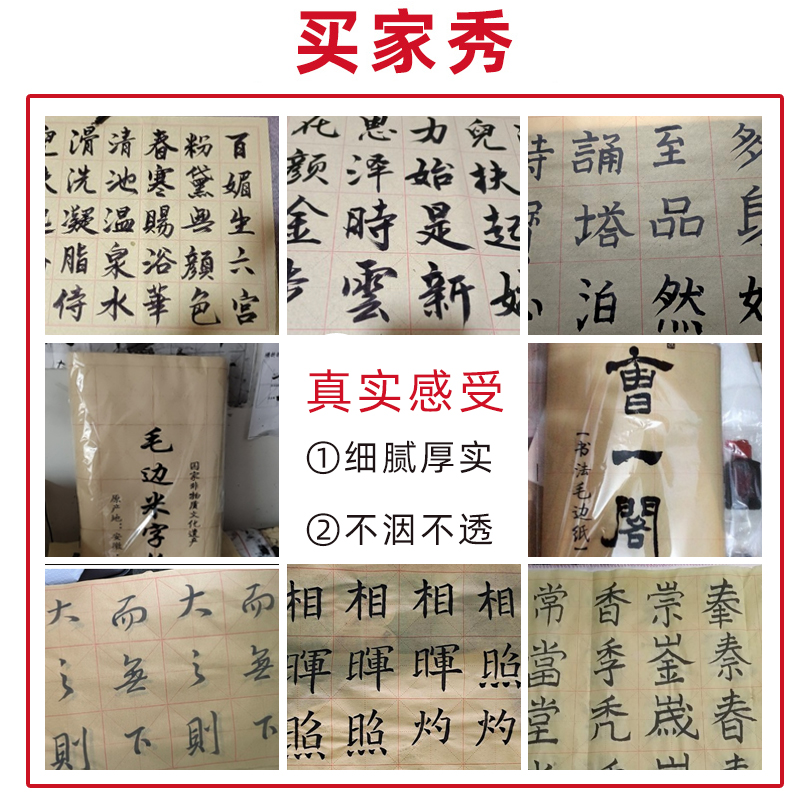 买家秀
百媚生六宫
粉黛無顔色
春寒賜浴華
清池温泉水
滑洗凝脂侍
兒扶起
力始是新
恩澤時雲
花顔金
多
至品然
誦塔泊
毛边米字
国家非物质文化遗产
原产地：安徽
真实感受
①细腻厚实
②不洇不透
曹一閣
书法毛边纸
而無下
大之則
而無下
大之則
相相相相
暉暉暉照
照照灼灼
常香崇奉
當季崟泰
堂秃嵗春